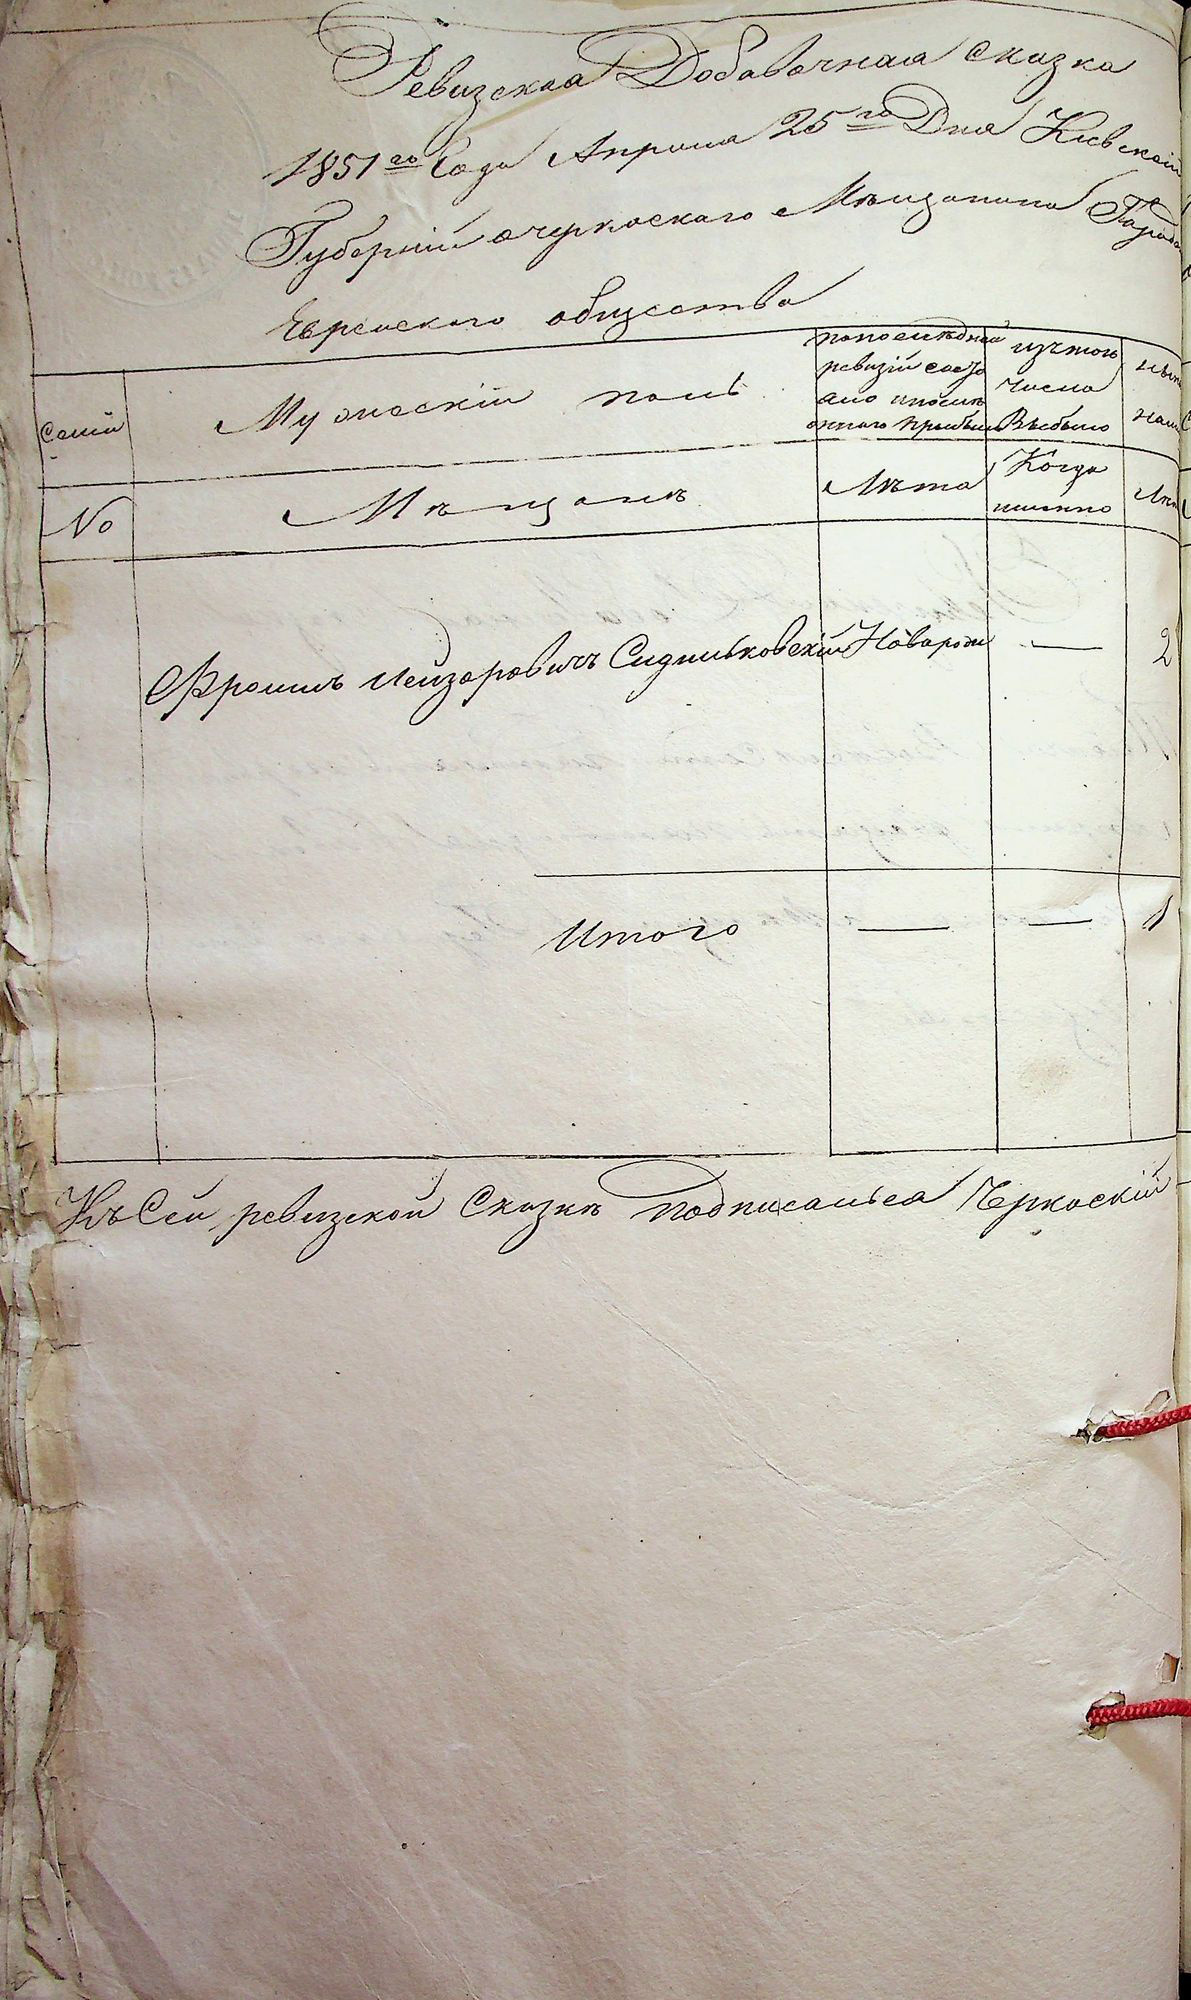 Ревизская Добавочная сказка
1851го Года Апреля 25го Дня Киевской
Губерній очеркаскаго Мещанина Города
Еврейского общества
Семій
Мужескій полъ
попоследней
ревизій состо
яло ипосле
оного прибыло
изтого
числа
Выбыло
No
Мещане
Лета
Когда
именно
Фроимъ Лейзеровичъ Сидельковскій Новорож
— 2
Итого — — 1
Къ Сей ревизской Сказке подписался Черкаскій